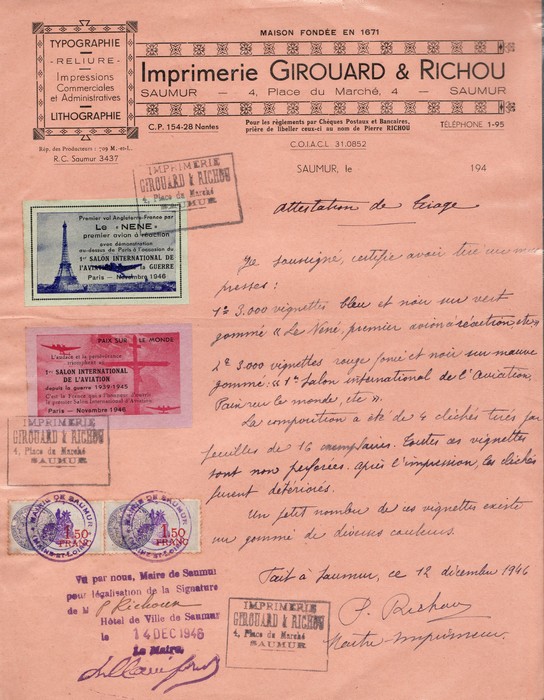 MAISON FONDÉE EN 1671
TYPOGRAPHIE
- RELIURE -
Impressions
Commerciales
et Administratives
LITHOGRAPHIE
Imprimerie GIROUARD & RICHOU
SAUMUR — 4, Place du Marché, 4 — SAUMUR
C.P. 154-28 Nantes
Pour les règlements par Chèques Postaux et Bancaires,
prière de libeller ceux-ci au nom de Pierre RICHOU
TÉLÉPHONE 1-95
Rép. des Producteurs : 709 M.-et-L.
R.C. Saumur 3437
C.O.I.A.C.L 31.0852
SAUMUR, le 194
IMPRIMERIE
GIROUARD & RICHOU
4, Place du Marché
SAUMUR
Attestation de Tirage
Premier vol Angleterre-France par
Le «NENE»
premier avion à réaction
avec démonstration
au-dessus de Paris à l'occasion du
1er SALON INTERNATIONAL DE
L'AVIATION la GUERRE
Paris - Novembre 1946
PAIX SUR LE MONDE
L'audace et la persévérance
triomphent au
1er SALON INTERNATIONAL
DE L'AVIATION
depuis la guerre 1939-1945
C'est la France qui a l'honneur d'ouvrir
le premier Salon International d'Aviation
Paris - Novembre 1946
Je soussigné, certifie avoir tiré sur mes
presses:
1º 3.000 vignettes bleu et noir sur vert
gommé "Le Néné, premier avion à réaction, etc"
2º 3.000 vignettes rouge foncé et noir sur mauve
gommé: "1er Salon international de l'Aviation,
Paix sur le monde, etc".
La composition a été de 4 clichés tirés par
feuilles de 16 exemplaires. Toutes ces vignettes
sont non perforées. Après l'impression, les clichés
furent détériorés.
Un petit nombre de ces vignettes existe
sur gommé de diverses couleurs.
Fait à Saumur, ce 12 décembre 1946
P. Richou
Maître-Imprimeur.
IMPRIMERIE
GIROUARD & RICHOU
4, Place du Marché
SAUMUR
MAIRIE DE SAUMUR
(MAINE-ET-LOIRE)
1,50
FRANC
MAIRIE DE SAUMUR
(MAINE-ET-LOIRE)
1,50
FRANC
Vu par nous, Maire de Saumur
pour légalisation de la Signature
de M P. Richou
Hôtel de Ville de Saumur
le 14 DEC 1946
Le Maire,
IMPRIMERIE
GIROUARD & RICHOU
4, Place du Marché
SAUMUR